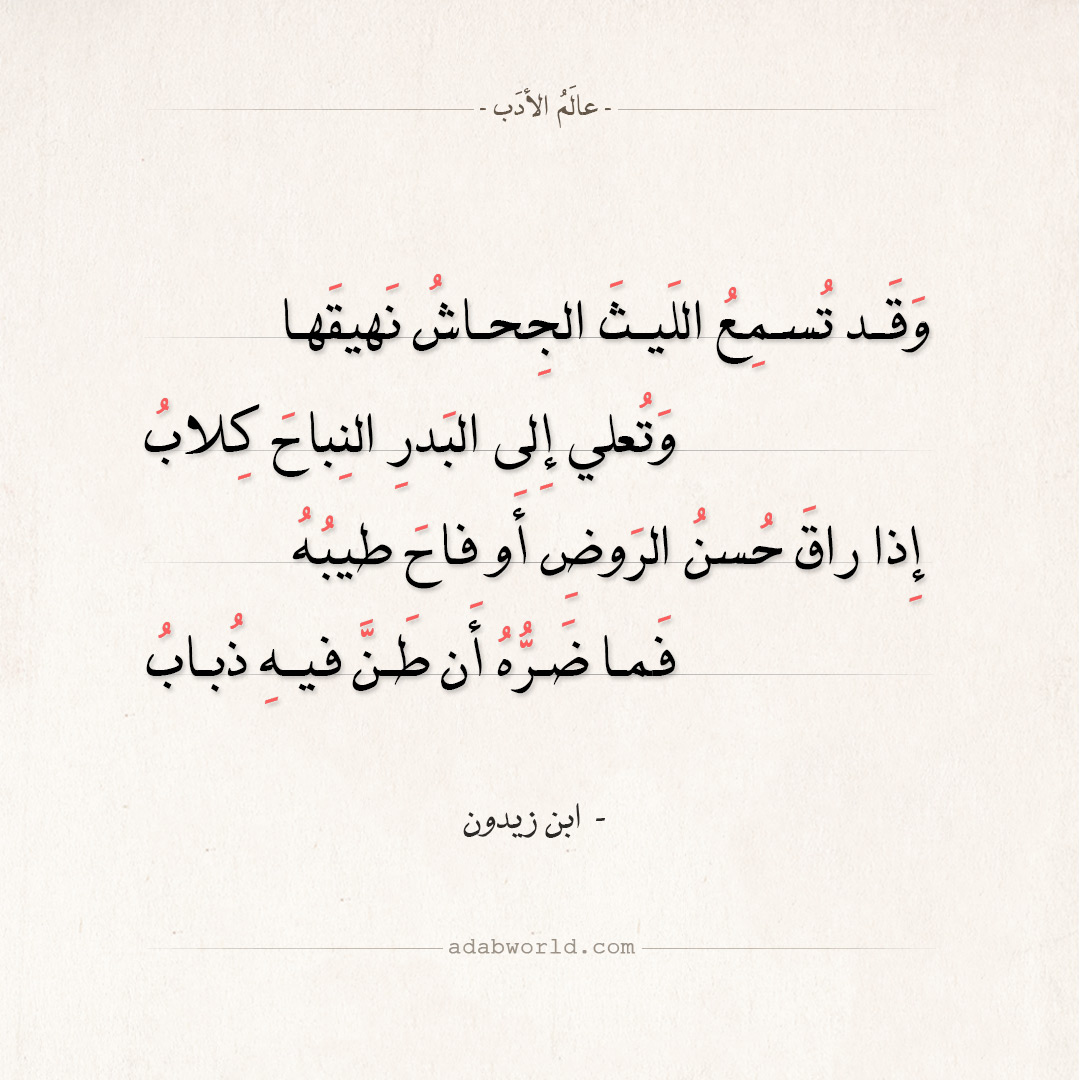 - عالَمُ الأدَب -
وَقَـد تُسـمِعُ اللَيـثَ الجِحـاشُ نَهيقَهـا
وَتُعلي إِلى البَدرِ النِباحَ كِلابُ
إِذا راقَ حُسنُ الرَوضِ أَو فاحَ طيبُهُ
فَمـا ضَـرُّهُ أَن طَـنَّ فيـهِ ذُبـابُ
- ابن زيدون
adabworld.com